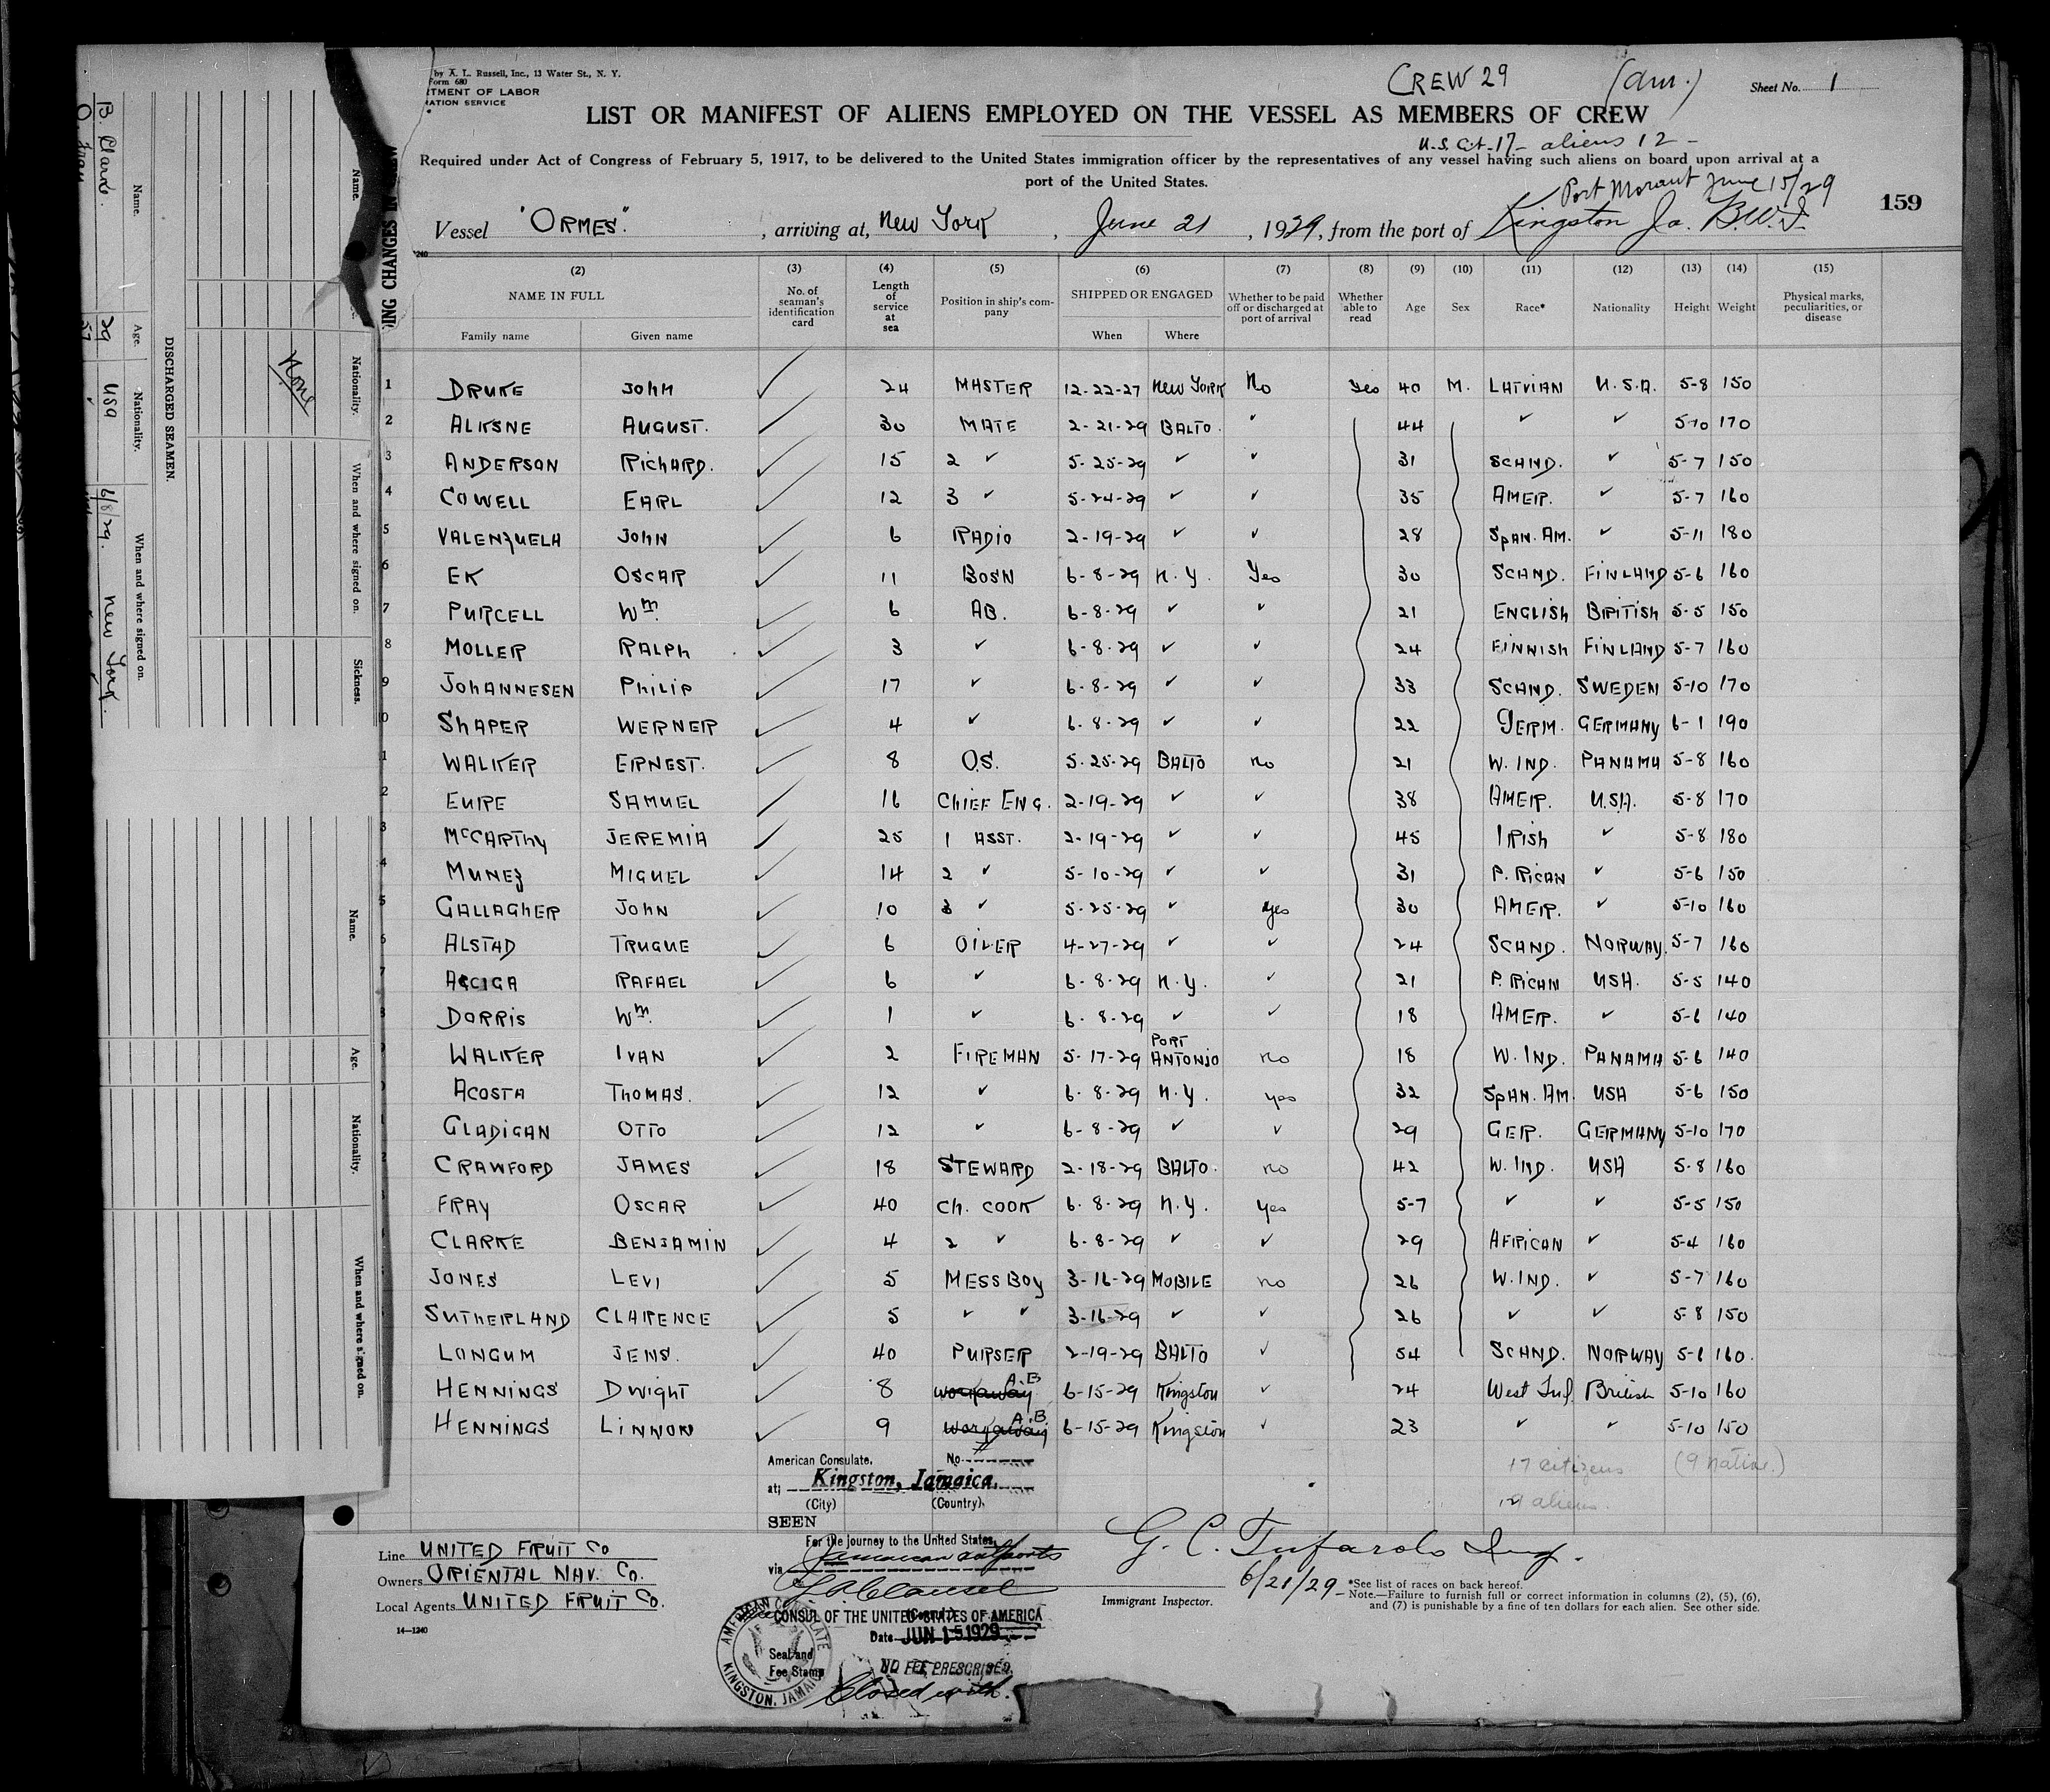 by A. L. Russell, Inc., 13 Water St., N. Y.
Form 680
RTMENT OF LABOR
RATION SERVICE
CREW 29 (Am.) Sheet No. 1
LIST OR MANIFEST OF ALIENS EMPLOYED ON THE VESSEL AS MEMBERS OF CREW
U.S. Cit - 17 - aliens 12 -
Required under Act of Congress of February 5, 1917, to be delivered to the United States immigration officer by the representatives of any vessel having such aliens on board upon arrival at a
port of the United States.
Port Morant June 15/29
159
Vessel "ORMES". , arriving at, New York , June 21 , 1929, from the port of Kingston Ja. B.W.I.
(2) (3) (4) (5) (6) (7) (8) (9) (10) (11) (12) (13) (14) (15)
NAME IN FULL No. of seaman's identification card Length of service at sea Position in ship's company SHIPPED OR ENGAGED Whether to be paid off or discharged at port of arrival Whether able to read Age Sex Race* Nationality Height Weight Physical marks, peculiarities, or disease
Family name Given name When Where
1 DRUKE JOHN ✓ 24 MASTER 12-22-27 New YORK No Yes 40 M. LATVIAN U.S.A. 5-8 150
2 ALKSNE AUGUST. ✓ 30 MATE 2-21-29 BALTO. ✓ 44 ✓ ✓ 5-10 170
3 ANDERSON RICHARD. ✓ 15 2 ✓ 5-25-29 ✓ ✓ 31 SCAND. ✓ 5-7 150
4 COWELL EARL ✓ 12 3 ✓ 5-24-29 ✓ ✓ 35 AMER. ✓ 5-7 160
5 VALENZUELA JOHN ✓ 6 RADIO 2-19-29 ✓ ✓ 28 SPAN. AM. ✓ 5-11 180
6 EK OSCAR ✓ 11 BOSN 6-8-29 N.Y. Yes 30 SCAND. FINLAND 5-6 160
7 PURCELL Wm. ✓ 6 AB. 6-8-29 ✓ ✓ 21 ENGLISH BRITISH 5-5 150
8 MOLLER RALPH ✓ 3 ✓ 6-8-29 ✓ ✓ 24 FINNISH FINLAND 5-7 160
9 JOHANNESEN PHILIP ✓ 17 ✓ 6-8-29 ✓ ✓ 33 SCAND. SWEDEN 5-10 170
10 SHAPER WERNER ✓ 4 ✓ 6-8-29 ✓ ✓ 22 GERM. GERMANY 6-1 190
1 WALKER ERNEST. ✓ 8 O.S. 5-25-29 BALTO no 21 W. IND. PANAMA 5-8 160
2 EURE SAMUEL ✓ 16 CHIEF ENG. 2-19-29 ✓ ✓ 38 AMER. U.S.A. 5-8 170
3 McCARTHY JEREMIA ✓ 25 1 ASST. 2-19-29 ✓ ✓ 45 IRISH ✓ 5-8 180
4 MUNEZ MIGUEL ✓ 14 2 ✓ 5-10-29 ✓ ✓ 31 P. RICAN ✓ 5-6 150
5 GALLAGHER JOHN ✓ 10 3 ✓ 5-25-29 ✓ yes 30 AMER. ✓ 5-10 160
6 ALSTAD TRUGUE ✓ 6 OILER 4-27-29 ✓ ✓ 24 SCAND. NORWAY. 5-7 160
7 RAFAEL ✓ 6 ✓ 6-8-29 N.Y. ✓ 21 P. RICAN USA. 5-5 140
8 DORRIS Wm. ✓ 1 ✓ 6-8-29 ✓ ✓ 18 AMER. ✓ 5-6 140
9 WALKER IVAN ✓ 2 FIREMAN 5-17-29 PORT ANTONIO no 18 W. IND. PANAMA 5-6 140
0 ACOSTA THOMAS. ✓ 12 ✓ 6-8-29 N.Y. yes 32 SPAN. AM. USA 5-6 150
1 GLADIGAN OTTO ✓ 12 ✓ 6-8-29 ✓ ✓ 29 GER. GERMANY 5-10 170
2 CRAWFORD JAMES ✓ 18 STEWARD 2-18-29 BALTO. no 42 W. IND. USA 5-8 160
FRAY OSCAR ✓ 40 CH. COOK 6-8-29 N.Y. yes 5-7 ✓ ✓ 5-5 150
CLARKE BENJAMIN ✓ 4 2 ✓ 6-8-29 ✓ ✓ 29 AFRICAN ✓ 5-4 160
JONES LEVI ✓ 5 MESS BOY 3-16-29 MOBILE no 26 W. IND. ✓ 5-7 160
SUTHERLAND CLARENCE ✓ 5 ✓ ✓ 3-16-29 ✓ ✓ 26 ✓ ✓ 5-8 150
LONGUM JENS. ✓ 40 PURSER 2-19-29 BALTO ✓ 54 SCAND. NORWAY 5-6 160.
HENNINGS DWIGHT ✓ 8 workaway A.B 6-15-29 Kingston ✓ 24 West Ind. British 5-10 160
HENNINGS LINNON ✓ 9 workaway A.B. 6-15-29 Kingston ✓ 23 ✓ ✓ 5-10 150
17 citizens (9 native.)
12 aliens.
American Consulate. No.
at: Kingston, Jamaica.
(City) (Country).
SEEN
For the journey to the United States.
via Jamaican outports
CONSUL OF THE UNITED STATES OF AMERICA
Date JUN 15 1929
NO FEE PRESCRIBED.
Seal and
Fee Stamp
AMERICAN CONSULATE
KINGSTON, JAMAICA
Closed with.
G. C. Tufarolo Insp.
6/21/29
Immigrant Inspector.
*See list of races on back hereof.
Note.—Failure to furnish full or correct information in columns (2), (5), (6),
and (7) is punishable by a fine of ten dollars for each alien. See other side.
Line UNITED FRUIT Co
Owners ORIENTAL NAV. Co.
Local Agents UNITED FRUIT Co.
14—1240
ING CHANGES IN
Name. Nationality. When and where signed on. Sickness.
None
DISCHARGED SEAMEN.
Name. Age. Nationality. When and where signed on.
B. Clarke. 29 USA 6/8/29. New York.
O. Fray 57
Name. Age. Nationality. When and where signed on.